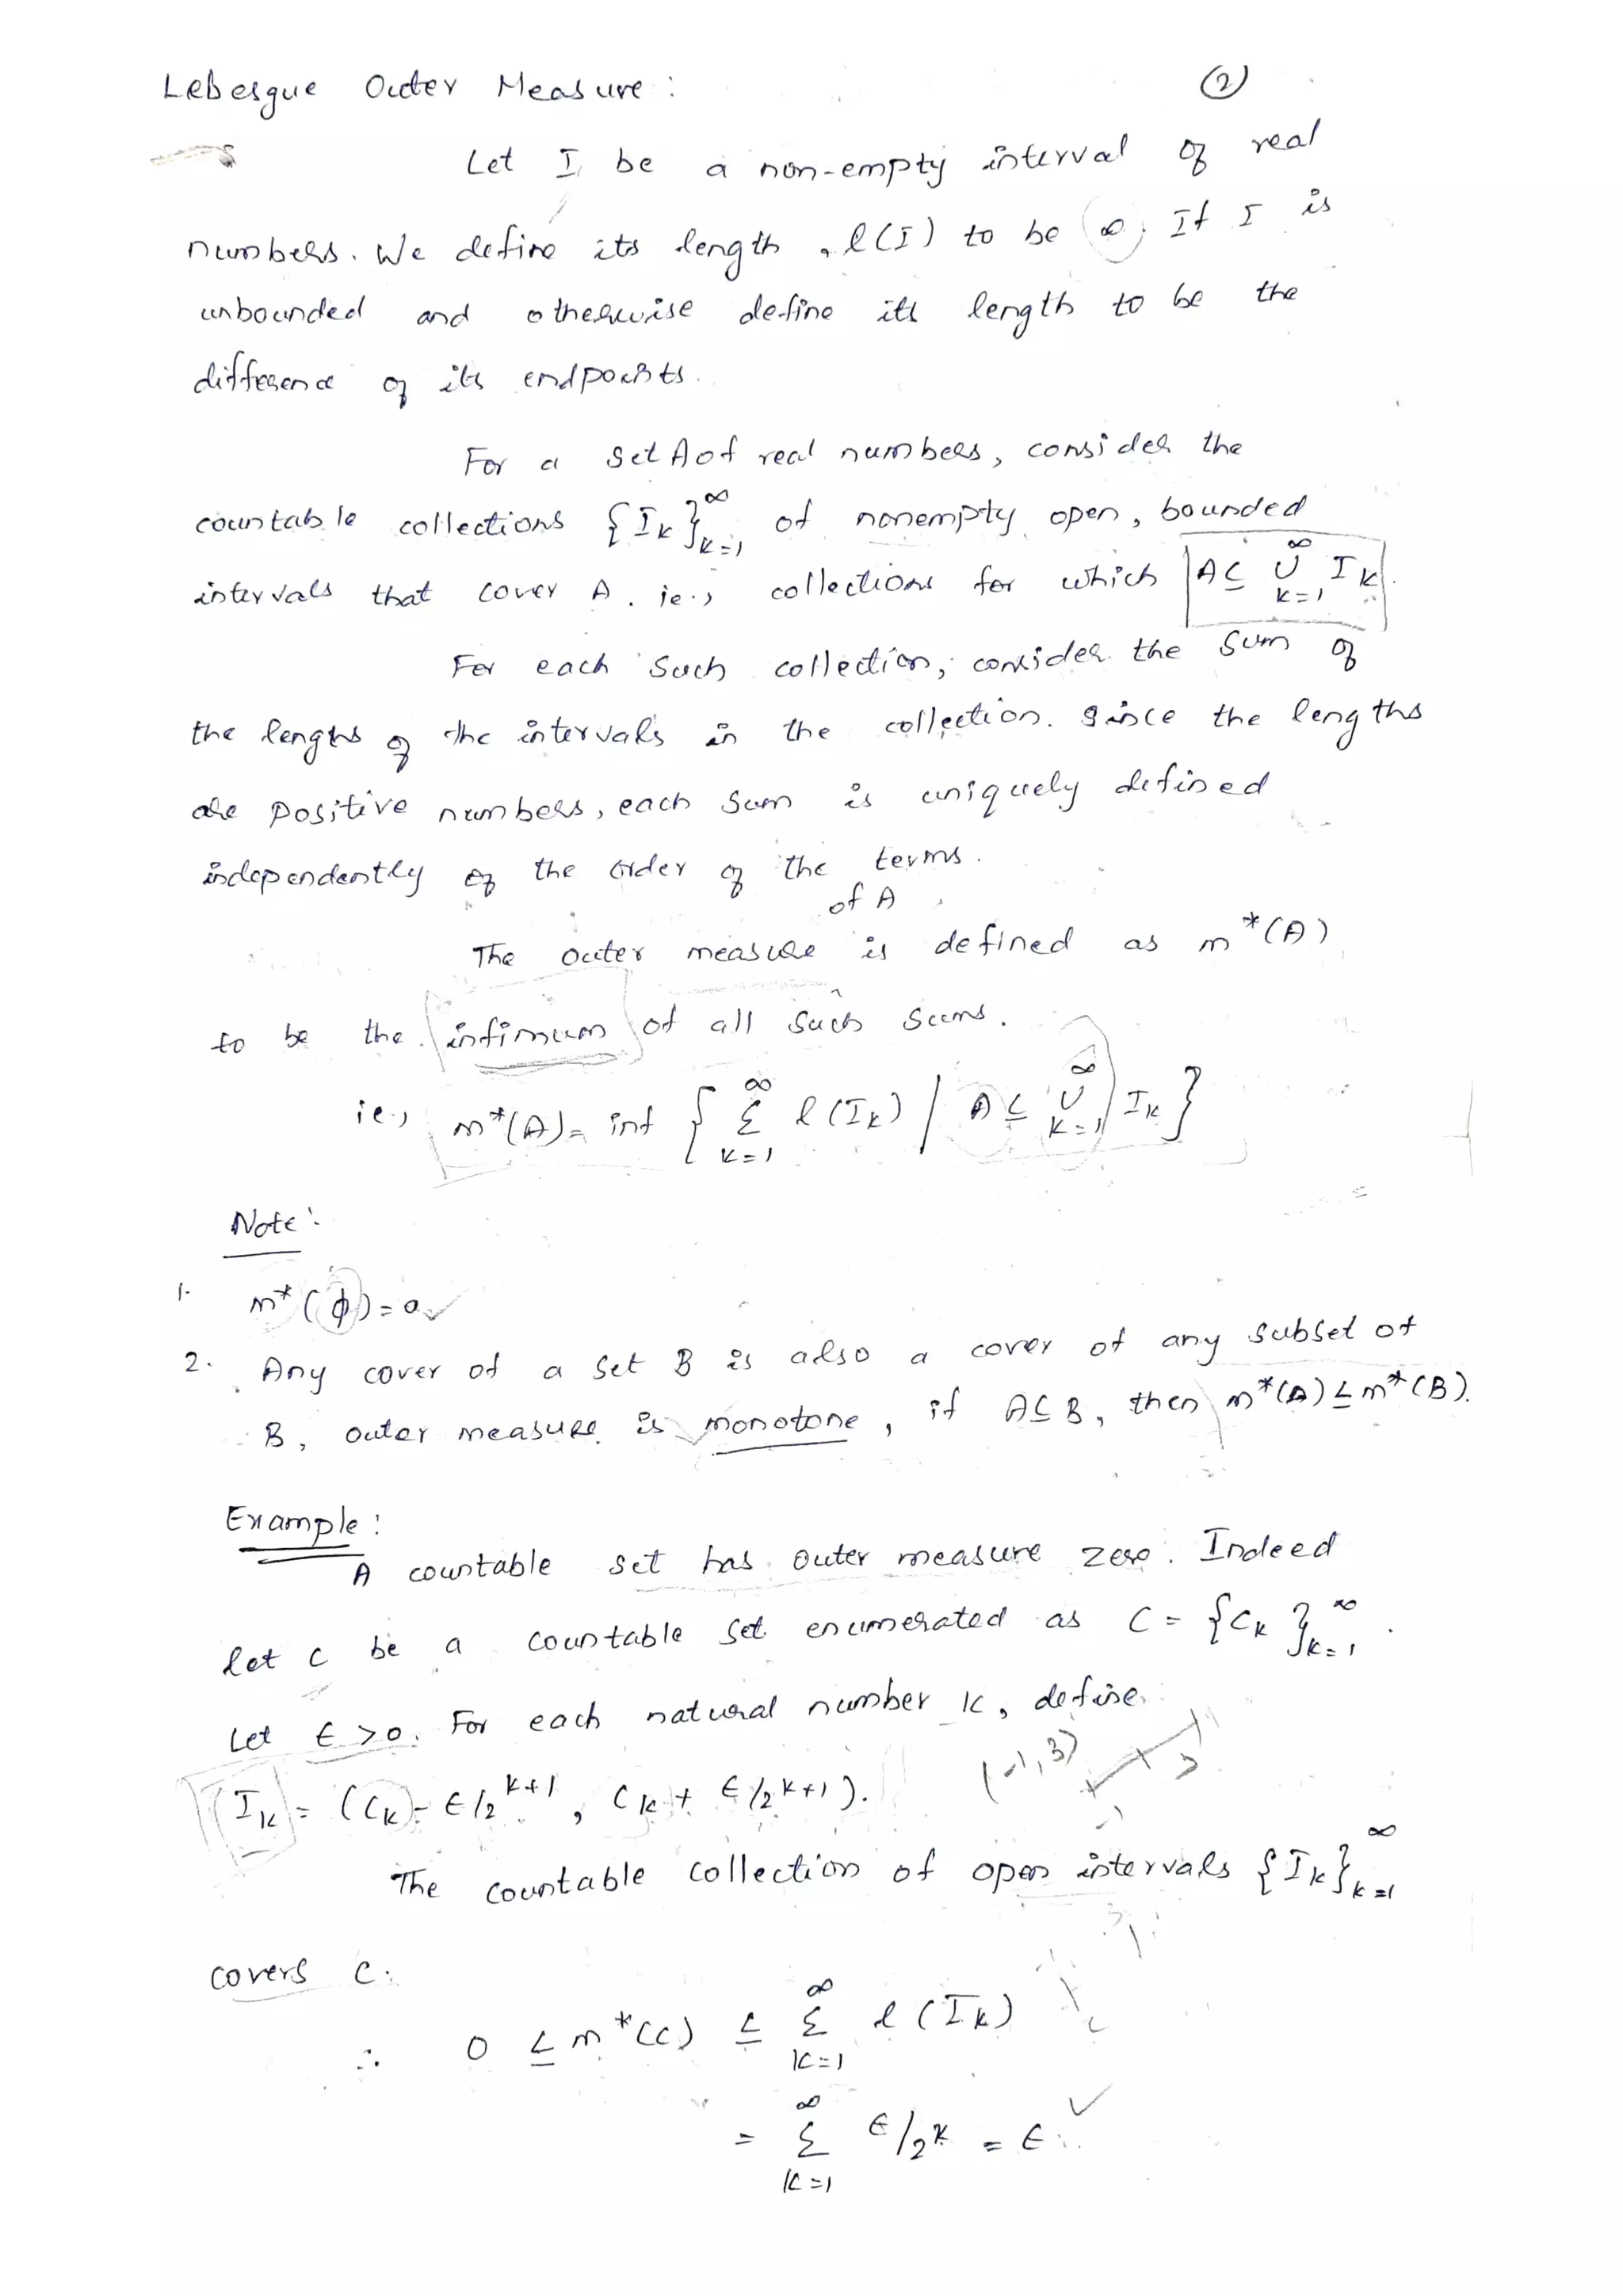 Lebesgue Outer Measure : ②
Let I be a non-empty interval of real
numbers. We define its length, l(I) to be ∞. If I is
unbounded and otherwise define its length to be the
difference of its endpoints.
For a set A of real numbers, consider the
countable collections {I_k}_{k=1}^∞ of nonempty open, bounded
intervals that cover A. ie., collections for which A ⊆ ∪_{k=1}^∞ I_k.
For each such collection, consider the sum of
the lengths of the intervals in the collection. Since the lengths
are positive numbers, each sum is uniquely defined
independently of the order of the terms.
of A
The outer measure is defined as m*(A)
to be the infimum of all such sums.
ie., m*(A) = inf { Σ_{k=1}^∞ l(I_k) / A ⊆ ∪_{k=1}^∞ I_k }
Note :
1. m*(ϕ) = 0 ✓
2. Any cover of a set B is also a cover of any subset of
B, outer measure is monotone, if A ⊆ B, then m*(A) ≤ m*(B).
Example :
A countable set has outer measure zero. Indeed
let C be a countable set enumerated as C = {C_k}_{k=1}^∞.
Let ϵ > 0. For each natural number k, define
(-1, 3)
I_k = (C_k - ϵ/2^{k+1}, C_k + ϵ/2^{k+1}).
The countable collection of open intervals {I_k}_{k=1}^∞
covers C.
∴ 0 ≤ m*(C) ≤ Σ_{k=1}^∞ l(I_k)
= Σ_{k=1}^∞ ϵ/2^k = ϵ. ✓